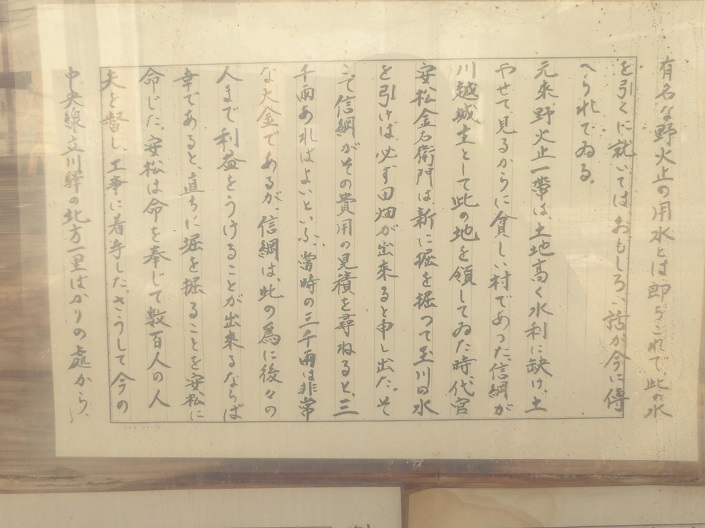 有名な野火止の用水とは即ちこれで、此の水
を引くに就いてはおもしろい話が今に傳
へられてゐる。
元来野火止一帯は、土地高く水利に缺け、土
やせて見るからに貧しい村であつた。信綱が
川越城主として此の地を領してゐた時代官
安松金右衛門は、新に堀を掘つて玉川の水
を引けば必ず田畑が出来ると申し出た。そ
こで信綱がその費用の見積を尋ねると、三
千両あればよいといふ。當時の三千両は非常
な大金であるが、信綱は此の為に後々の
人まで利益をうけることが出来るならば
幸であると、直ちに堀を掘ることを安松に
命じた。安松は命を奉じて数百人の人
夫を督し、工事に着手した。さうして今の
中央線立川驛の北方一里ばかりの處から、